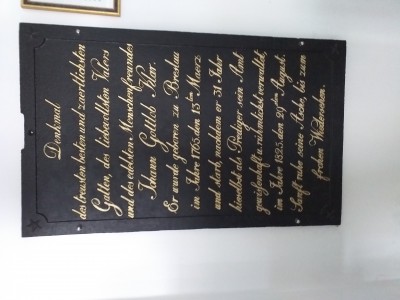 Denkmal
des treusten besten und zaertlichsten
Gatten, des liebevollsten Vaters
und des edelsten Menschenfreundes
Johann Gottlob Har.
Er wurde geboren zu Breslau
im Jahre 1765. den 15ten Maerz
und starb, nachdem er 31 Jahr
hieselbst als Prediger sein Amt
gewissenhaft u. rühmlichst verwaltet,
im Jahre 1825. den 29ten August.
Sanft ruhe seine Asche, bis zum
frohen Wiedersehen.